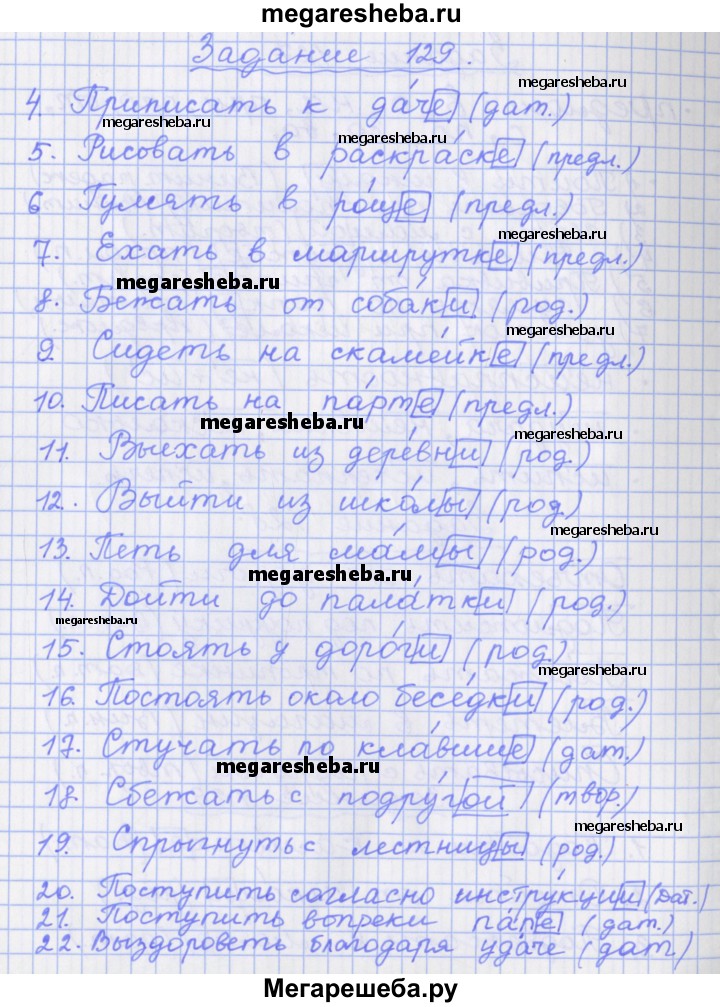 megaresheba.ru
Задание 129.
megaresheba.ru
4. Приписать к да́че (дат.)
megaresheba.ru
megaresheba.ru
5. Рисовать в раскра́ске (предл.)
6 Гулять в ро́ще (предл.)
7. Ехать в маршрутке (предл.)
megaresheba.ru
8. Бежать от соба́ки (род.)
megaresheba.ru
9. Сидеть на скаме́йке (предл.)
10. Писать на па́рте (предл.)
megaresheba.ru
megaresheba.ru
11. Выехать из дере́вни (род.)
12. Выйти из шко́лы (род.)
megaresheba.ru
13. Петь для ма́мы (род.)
megaresheba.ru
14. Дойти до пала́тки (род.)
megaresheba.ru
15. Стоять у доро́ги (род.)
megaresheba.ru
16. Постоять около бесе́дки (род.)
17. Стучать по кла́више (дат.)
megaresheba.ru
18. Сбежать с подру́гой (твор.)
megaresheba.ru
19. Спрыгнуть с лестницы (род.)
20. Поступить согласно инстру́кции (Дат.)
21. Поступить вопреки па́пе (дат.)
22. Выздороветь благодаря уда́че (дат.)
Мегарешеба.ру